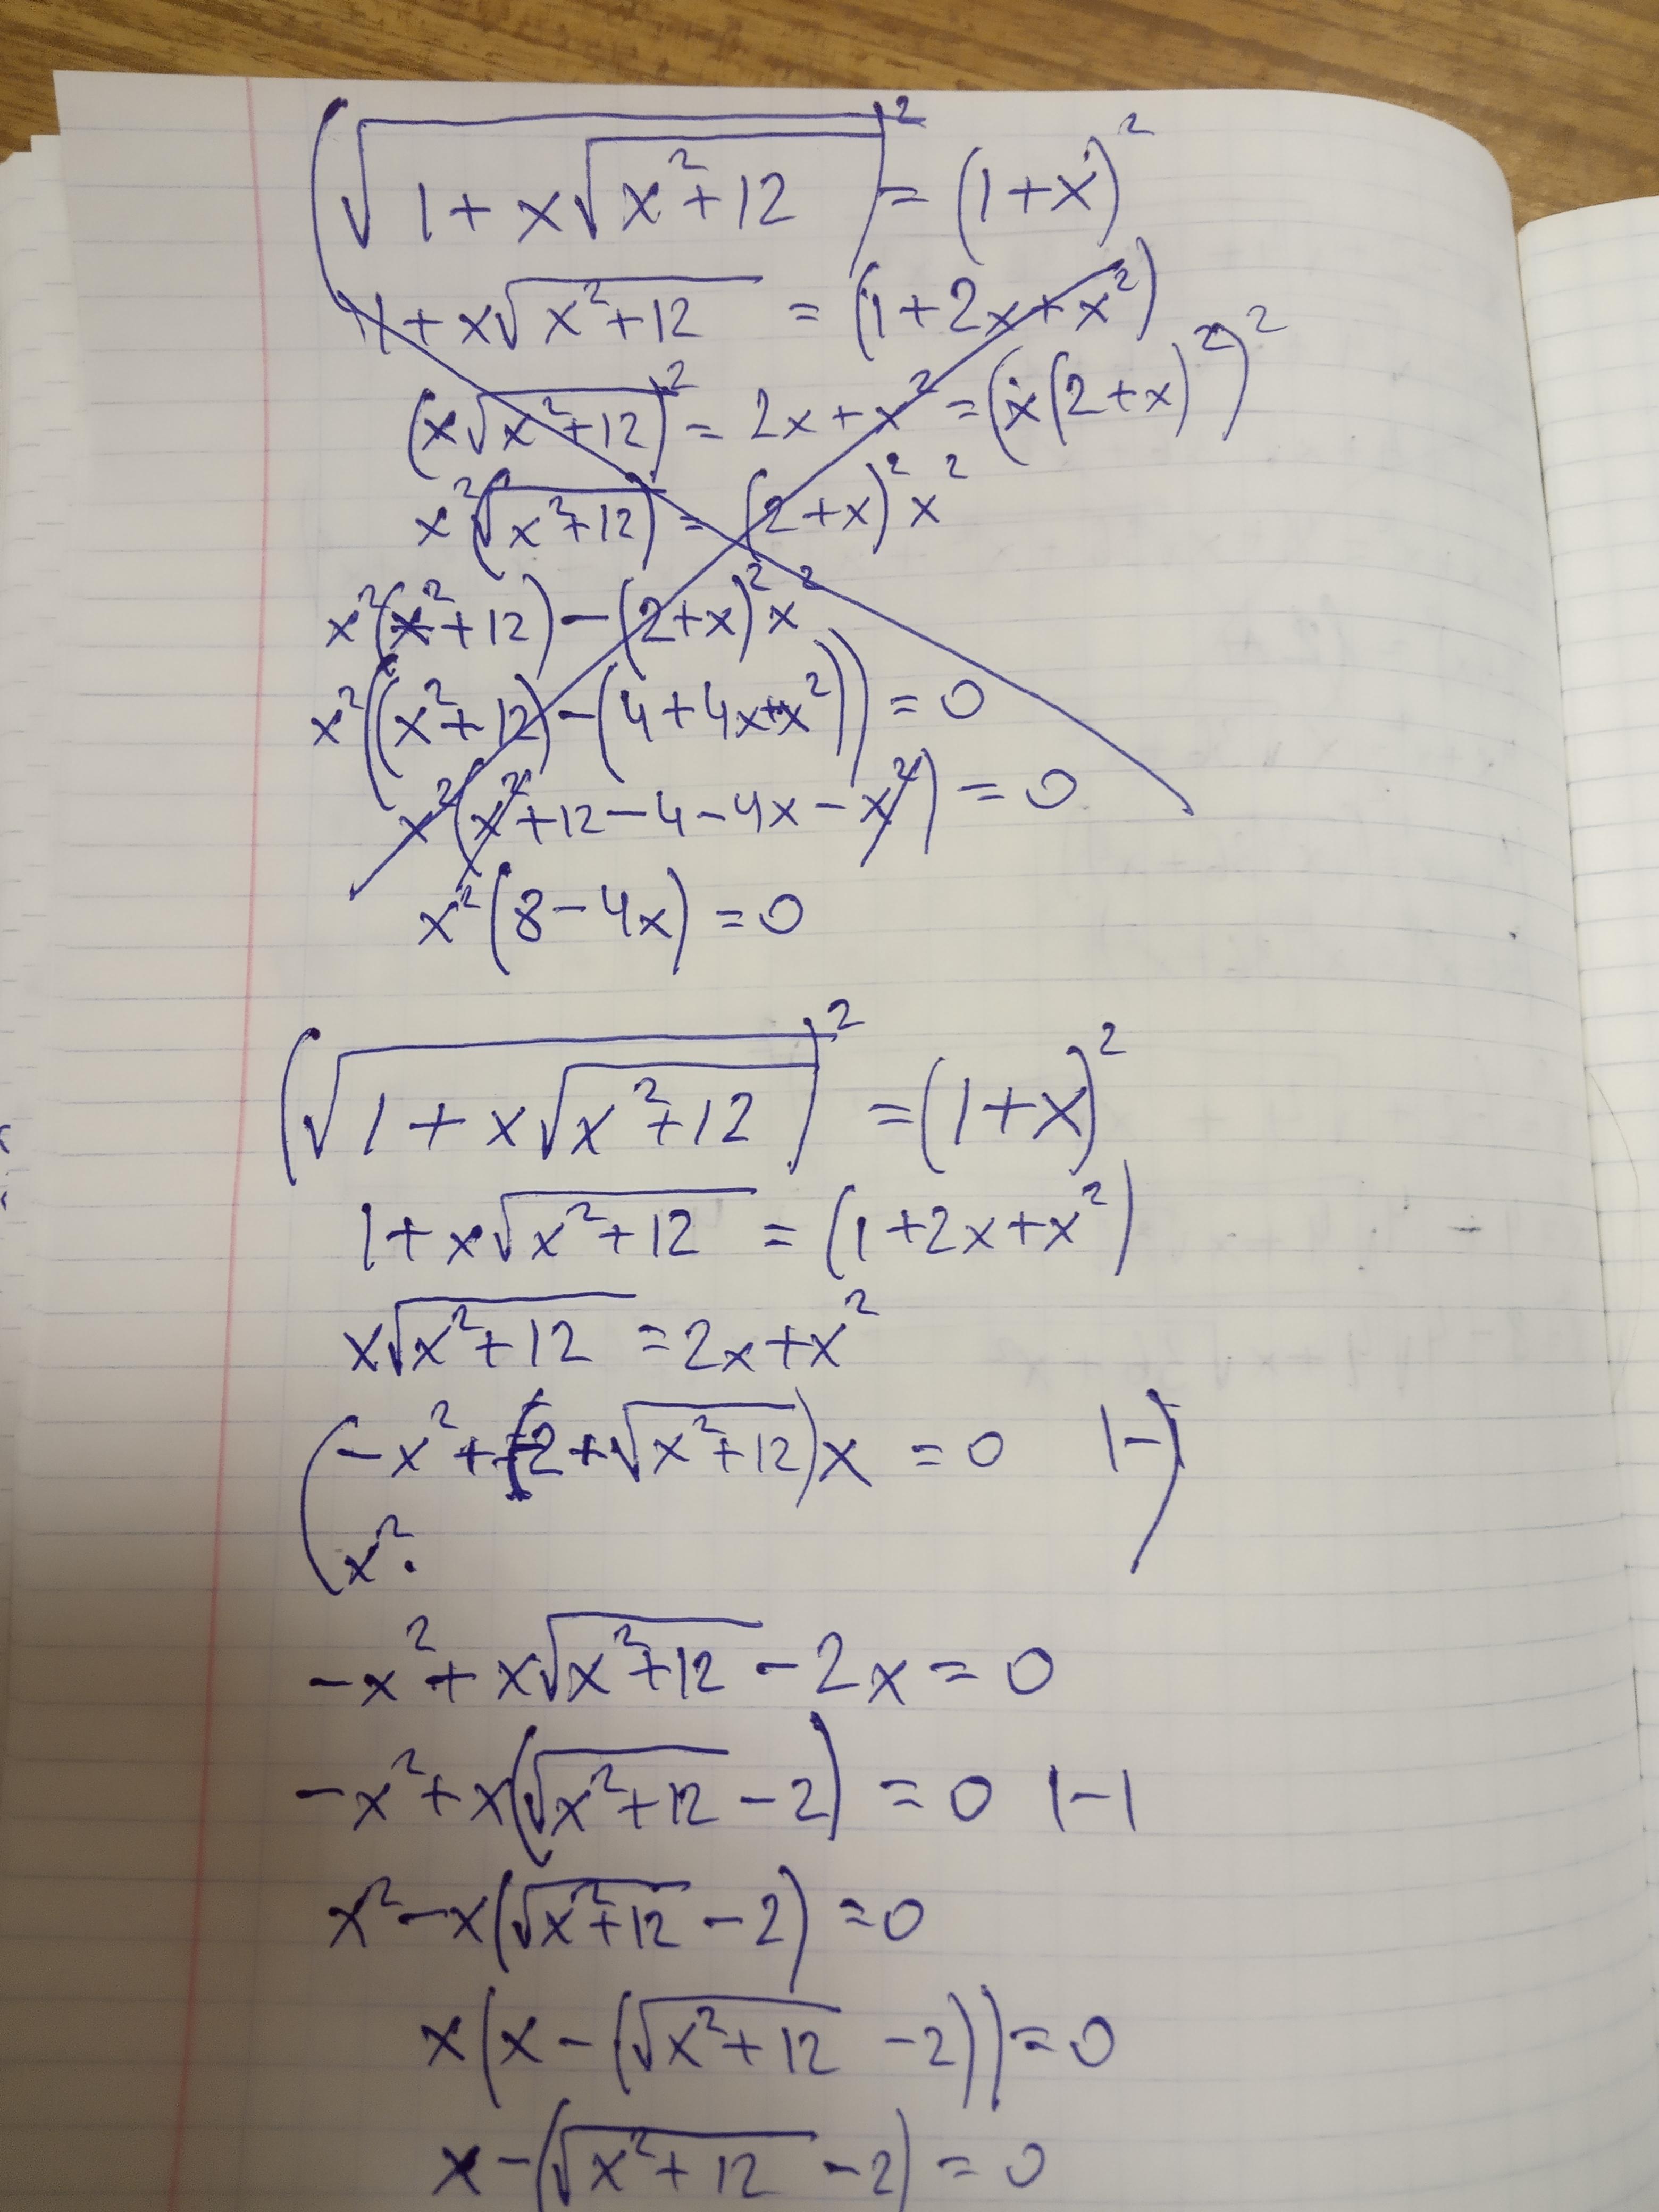 (√(1+x√(x²+12)))² = (1+x)²
1+x√(x²+12) = (1+2x+x²)
(x√(x²+12))² = 2x+x² = (x(2+x)²)²
x²(√(x²+12)) = (2+x)²x²
x²(x²+12)-(2+x)²x²
x²((x²+12)-(4+4x+x²)) = 0
x²(x²+12-4-4x-x²) = 0
x²(8-4x) = 0
(√(1+x√(x²+12)))² = (1+x)²
1+x√(x²+12) = (1+2x+x²)
x√(x²+12) = 2x+x²
(-x²+(2+√(x²+12))x = 0 |-)
x².
-x²+x√(x²+12)-2x = 0
-x²+x(√(x²+12)-2) = 0 |-1
x²-x(√(x²+12)-2) = 0
x(x-(√(x²+12)-2)) = 0
x-(√(x²+12)-2) = 0